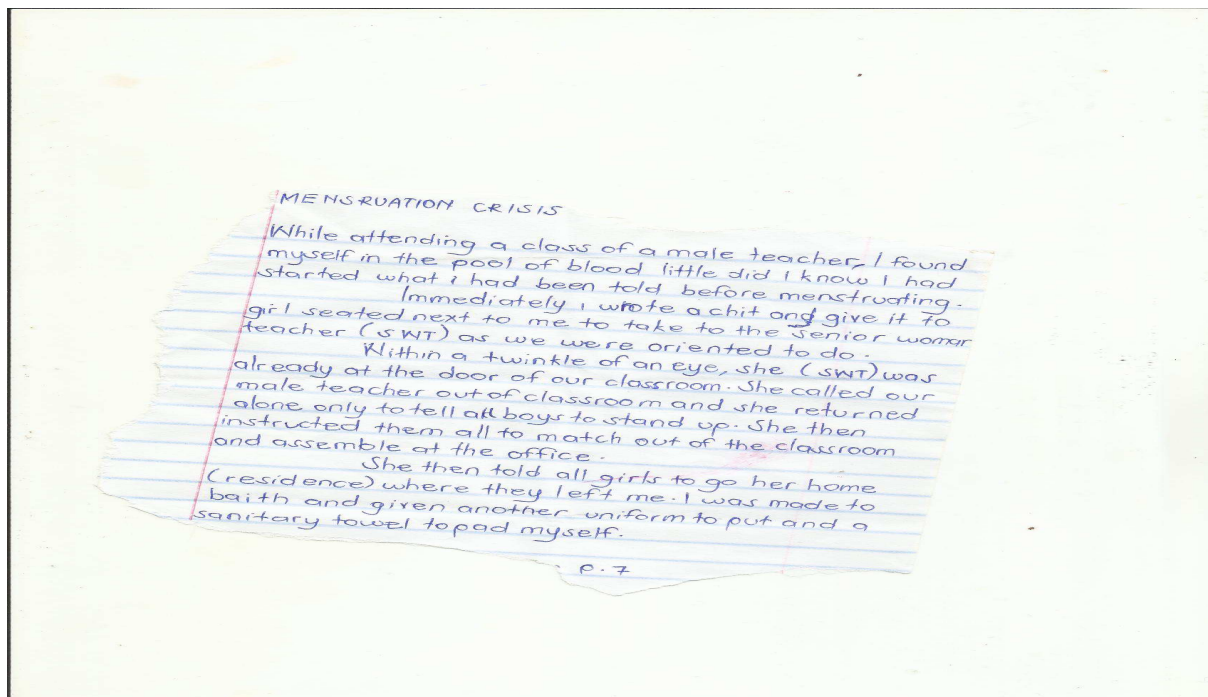 MENSRUATION CRISIS
While attending a class of a male teacher, I found
myself in the pool of blood little did I know I had
started what i had been told before menstruating.
Immediately I wrote a chit and give it to
girl seated next to me to take to the senior woman
teacher (SWT) as we were oriented to do.
Within a twinkle of an eye, she (SWT) was
already at the door of our classroom. She called our
male teacher out of classroom and she returned
alone only to tell all boys to stand up. She then
instructed them all to match out of the classroom
and assemble at the office.
She then told all girls to go her home
(residence) where they left me. I was made to
baith and given another uniform to put and a
sanitary towel to pad myself.
P.7